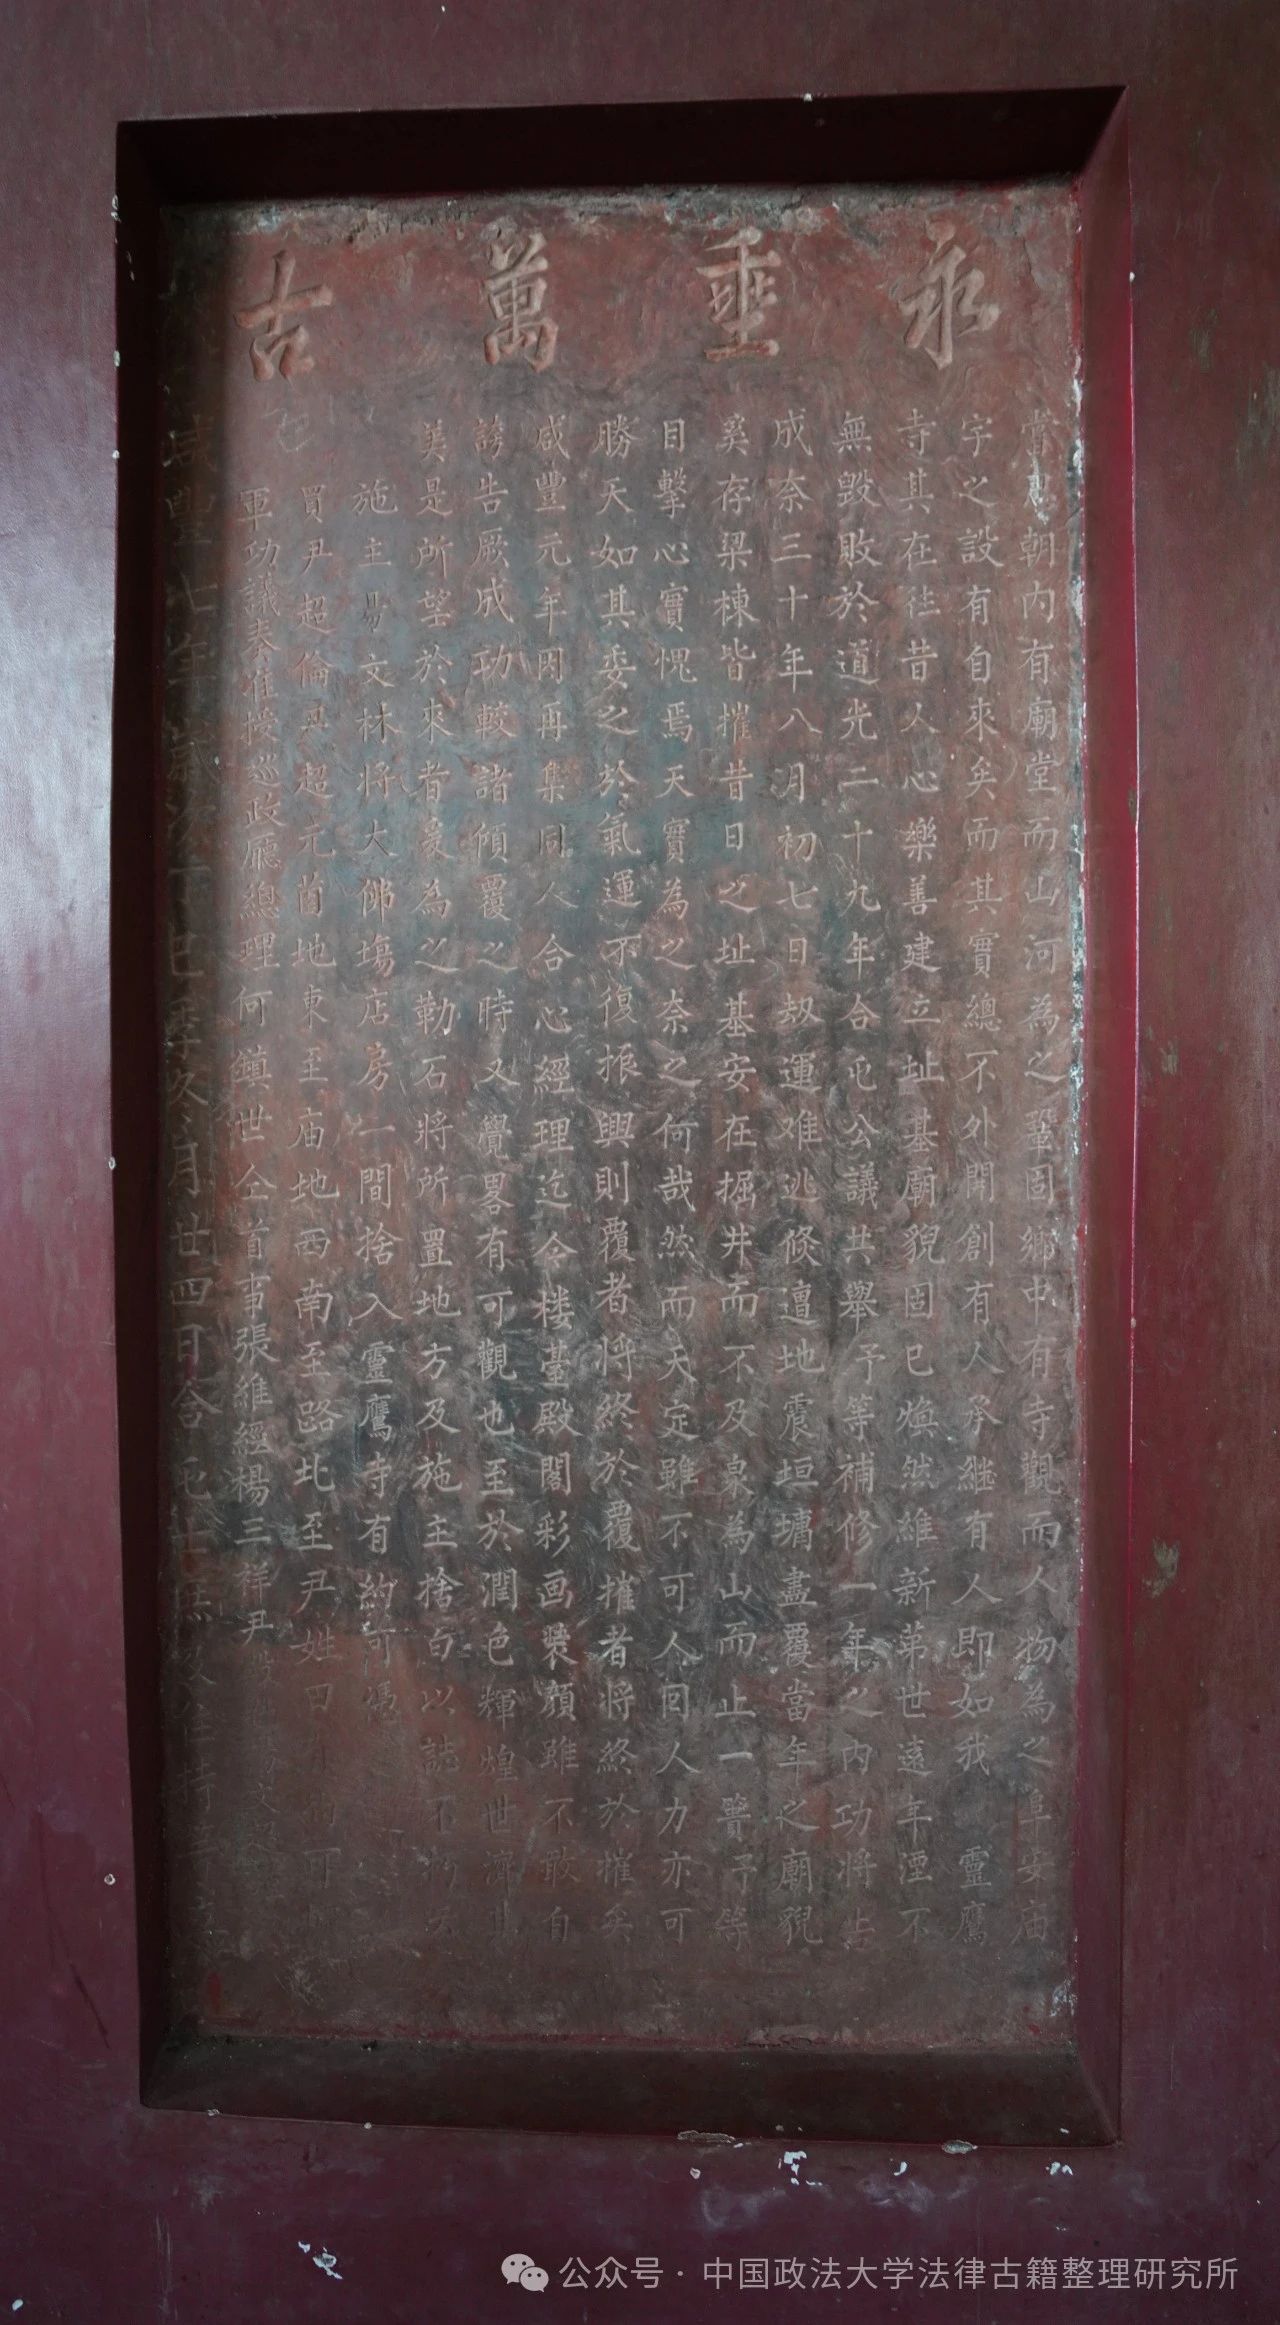 永垂萬古
嘗思朝內有廟堂而山河為之鞏固鄉中有寺觀而人物為之阜安庙
宇之設有自來矣而其實總不外開創有人承継有人即如我靈鷹
寺其在徃昔人心樂善建立址基廟貌固已煥然維新苐世遠年湮不
無毀敗於道光二十九年合屯公議共舉予等補修一年之內功將告
成奈三十年八月初七日刼運难逃倏遭地震垣墉盡覆當年之廟貌
奚存梁棟皆摧昔日之址基安在掘井而不及泉為山而止一簣予等
目擊心實愧焉天實為之奈之何哉然而天定雖不可人回人力亦可
勝天如其委之於氣運不復振興則覆者將終於覆摧者將終於摧矣
咸豐元年因再集同人合心經理迄今楼臺殿閣彩画裝顏雖不敢自
誇告厥成功較諸傾覆之時又覺畧有可觀也至於潤色輝煌世濟其
美是所望於來者爰為之勒石將所置地方及施主捨白以誌不朽
施主易文林將大佛塲店房一間捨入靈鷹寺有約可凴
買尹超倫尹超元
地東至庙地西南至路北至尹姓
有約可
軍功議奏准授巡政廳總理何鎮世仝首事張維經楊三祥尹
咸豐七年歲次丁巳季冬月廿四日合屯士庶及住持
公众号·中国政法大学法律古籍整理研究所